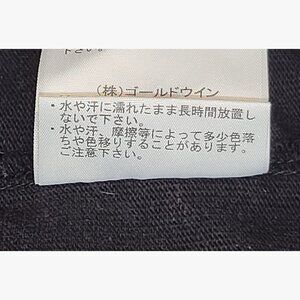 下さい。
(株)ゴールドウイン
・水や汗に濡れたまま長時間放置し
ないで下さい。
・水や汗、摩擦等によって多少色落
ちや色移りすることがあります。
ご注意下さい。